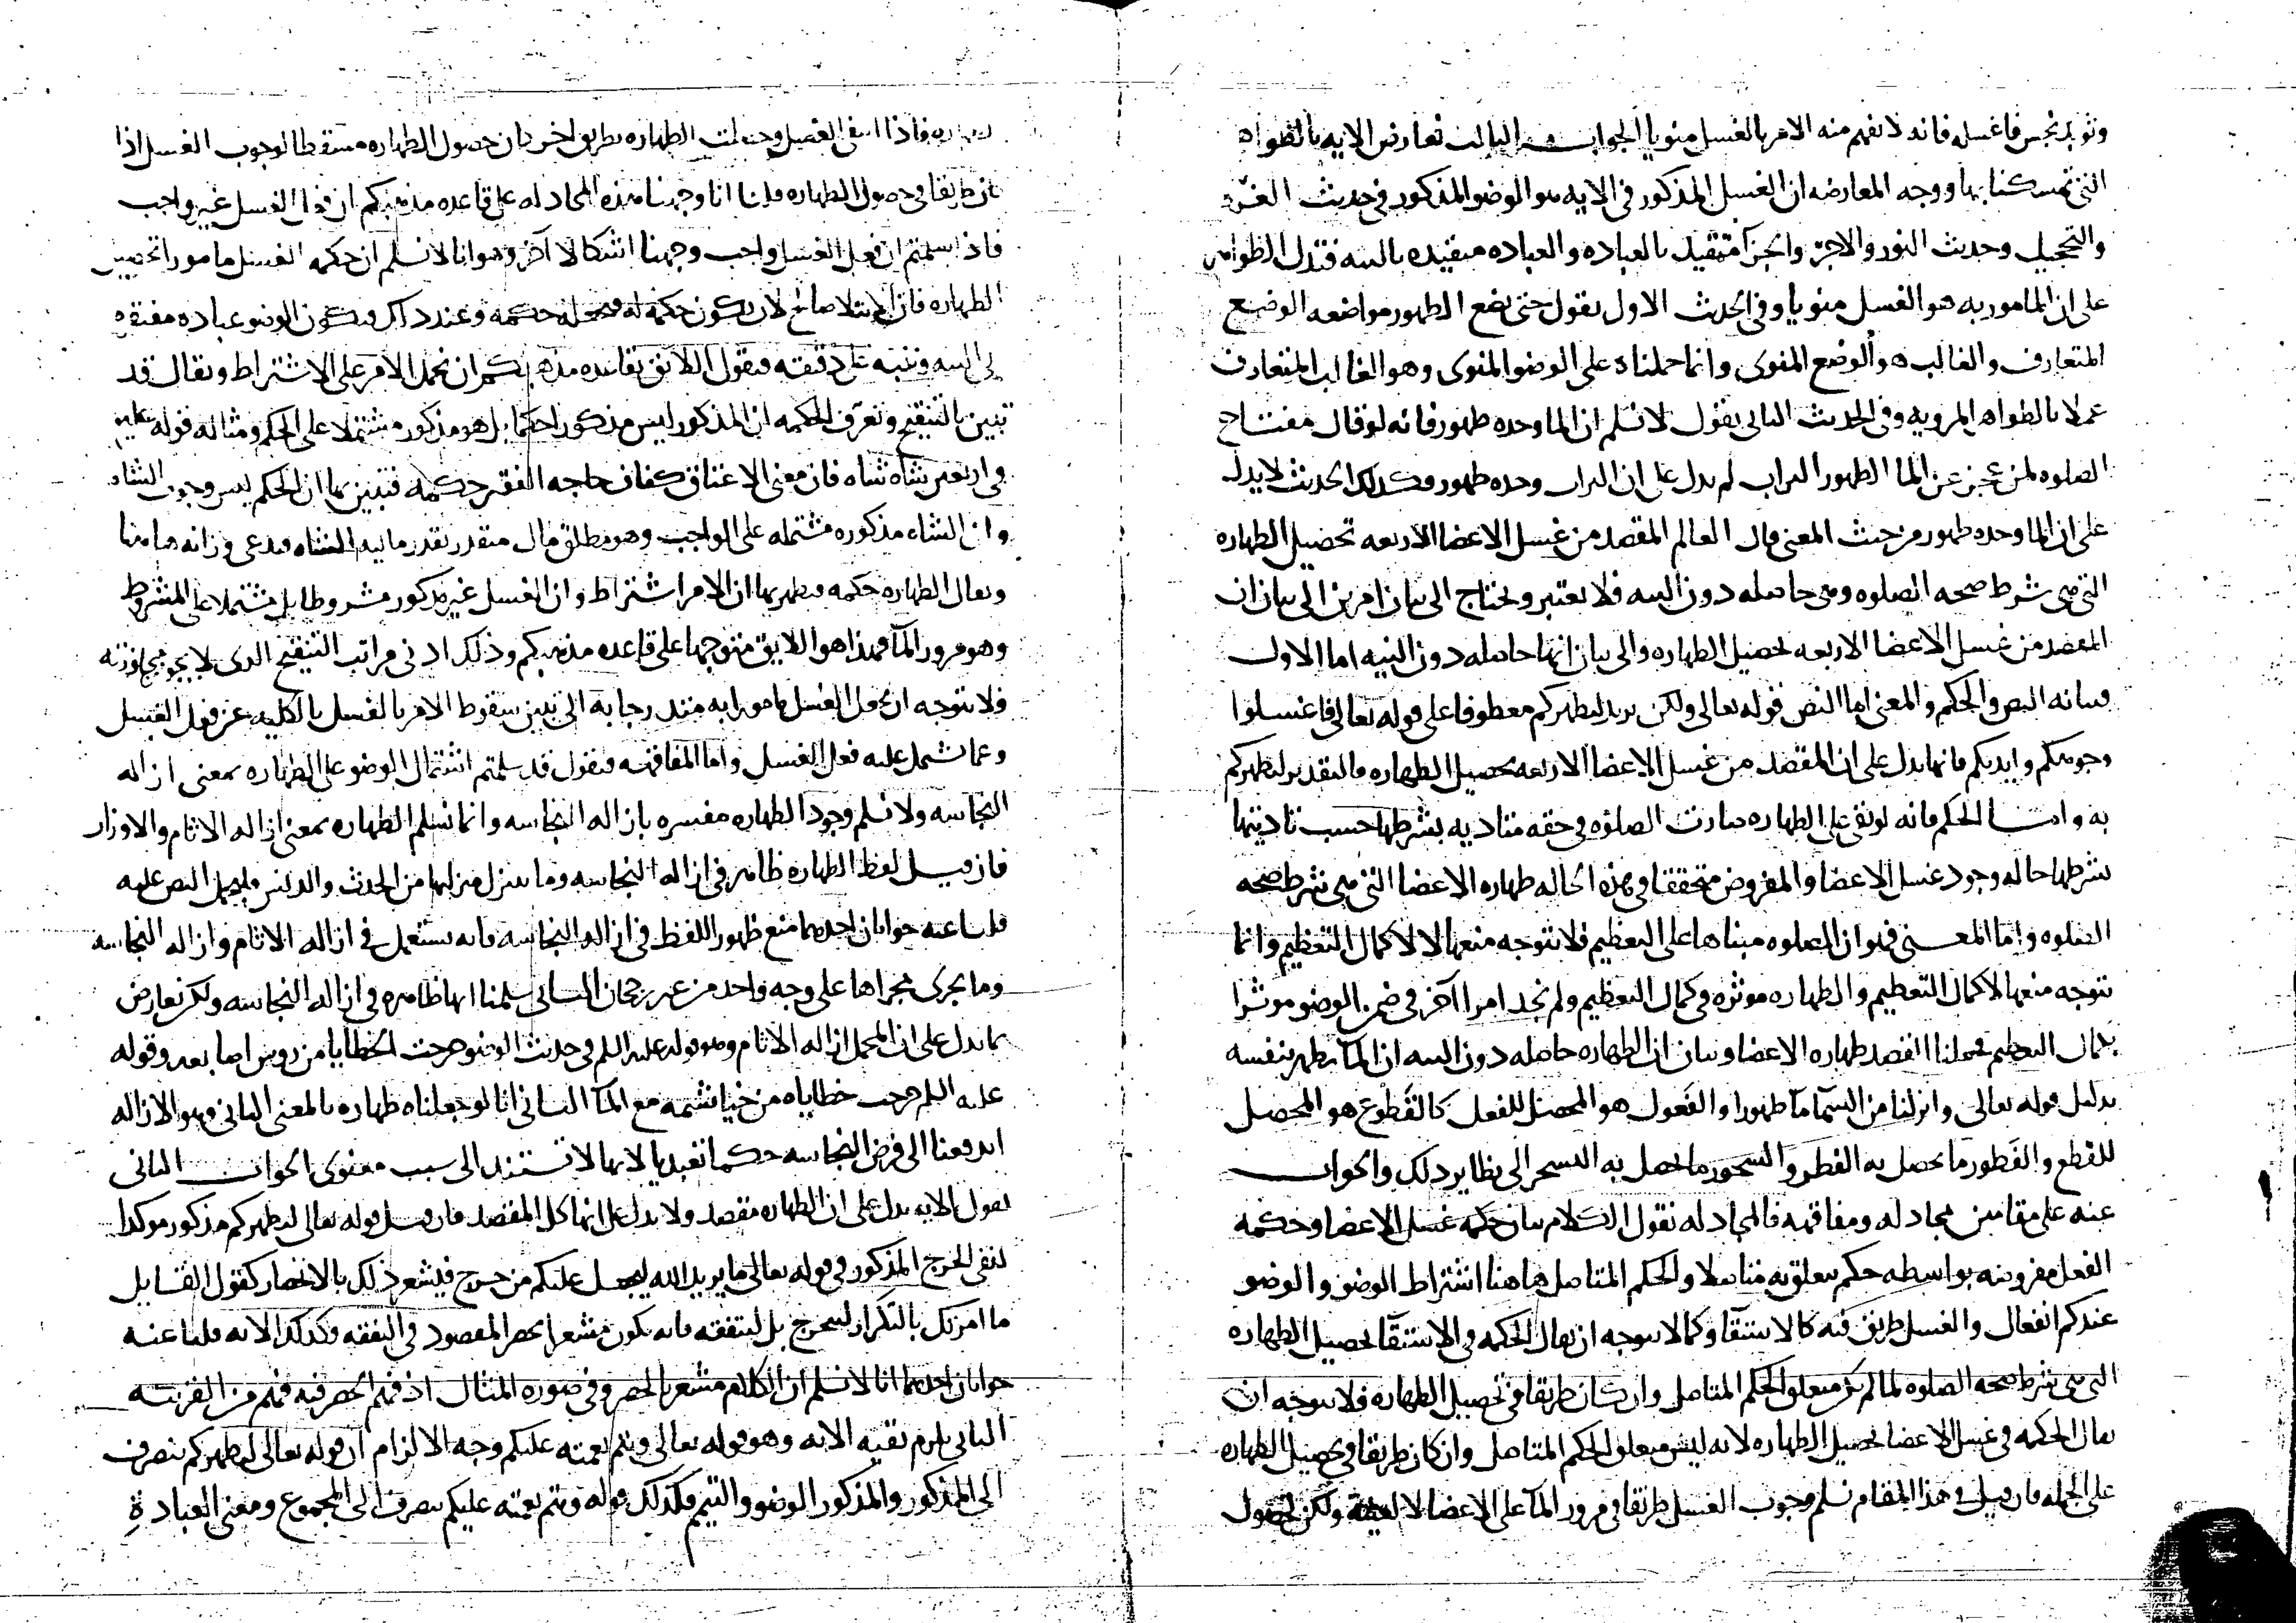 وثوبك نجس فاغسله فانه لا نفهم منه الامر بالغسل منويا الجواب الثالث نعارض الايه بالظواهر
التي تمسكنا بها ووجه المعارضه ان الغسل المذكور في الايه هو الوضو المذكور في حديث الغره
والتحجيل وحديث النور والاجر والجزآ متقيد بالعباده والعباده متقيده بالنيه فتدل الظواهر
على ان المامور به هو الغسل منويا وفي الحديث الاول نقول حتى يضع الطهور مواضعه الوضع
المتعارف والغالب هو الوضع المنوى وانما حملناه على الوضو المنوى وهو الغالب المتعارف
عملا بالظواهر المرويه وفي الحديث الثاني نقول لا نسلم ان الما وحده طهور فانه لو قال مفتاح
الصلوه لمن عجز عن الما الطهور التراب لم يدل على ان التراب وحده طهور وكذلك الحديث لا يدل
على ان الما وحده طهور من حيث المعنى قال العالم المقصد من غسل الاعضا الاربعه تحصيل الطهاره
التي هي شرط صحه الصلوه وهي حاصله دون النيه فلا تعتبر ونحتاج الى بيان امرين الى بيان ان
المقصد من غسل الاعضا الاربعه تحصيل الطهاره والى بيان انها حاصله دون النيه اما الاول
فبيانه النص والحكم والمعنى اما النص فقوله تعالى ولكن يريد ليطهركم معطوفا على قوله تعالى فاغسلوا
وجوهكم وايديكم فانها تدل على ان المقصد من غسل الاعضا الاربعه تحصيل الطهاره فالتقدير ليطهركم
به واما الحكم فانه لو بقي على الطهاره صارت الصلوه في حقه متاديه بشرطها حسب تاديتها
بشرطها حاله وجود غسل الاعضا والمفروض متحققا في هذه الحاله طهاره الاعضا التي هي شرط صحه
الصلوه واما المعنى فهو ان الصلوه مبناها على التعظيم فلا نتوجه منعها الا لاكمال التعظيم وانما
نتوجه منعها لاكمال التعظيم والطهاره موثره في كمال التعظيم ولم نجد امرا آخر في ضمن الوضو موثرا
بكمال التعظيم فجعلنا القصد طهاره الاعضا وبيان ان الطهاره حاصله دون النيه ان المآ يطهر بنفسه
بدليل قوله تعالى وانزلنا من السمآ مآ طهورا والفعول هو المحصل للفعل كالقطوع هو المحصل
للقطع والفطور ما يحصل به الفطر والسحور ما يحصل به التسحر الى نظاير ذلك والجواب
عنه على مقامين مجادله ومفاقهه فالمجادله نقول الكلام بيان حكمه غسل الاعضا وحكمه
الفعل مفروضه بواسطه حكم يتعلق به متاصلا والحكم المتاصل هاهنا اشتراط الوضو والوضو
عندكم انفعال والغسل طريق فيه كالاستقآ وكما لا يتوجه ان يقال الحكمه في الاستقآ تحصيل الطهاره
التي هي شرط صحه الصلوه لما لم يكن متعلق الحكم المتاصل وان كان طريقا في تحصيل الطهاره فلا يتوجه ان
يقال الحكمه في غسل الاعضا تحصيل الطهاره لانه ليس متعلق الحكم المتاصل وان كان طريقا في تحصيل الطهاره
على الجمله فان قيل في هذا المقام نسلم وجوب الغسل طريقا في مرور المآ على الاعضا لا لعينه ولكن لحصول
فاذا انتفى الغسل وحصلت الطهاره بطريق اخر كان حصول الطهاره مسقطا لوجوب الغسل اذا
كان طريقا في حصول الطهاره قلنا انا وجهنا هذه المجادله على قاعده مذهبكم ان فعل الغسل غير واجب
فاذا سلمتم ان فعل الغسل واجب وجهنا اشكالا آخر وهو انا لا نسلم ان حكمه الغسل مامورا تحصيل
الطهاره فان الابتلا صالح لان يكون حكمة له فنجعله حكمه وعند ذاك فيكون الوضو عباده مفتقره
الى النيه وننبه على دقيقه فنقول اللائق بقاعده مذهبكم ان نحمل الامر على الاشتراط ويقال قد
تبين بالتنقيح وتعرف الحكمه ان المذكور ليس مذكورا حكما بل هو مذكور مشتملا على الحكم ومثاله قوله عليه
في اربعين شاه شاه فان معنى الاغناق كفان حاجه الفقير حكمه فتبين بها ان الحكم ليس وجوب الشاه
وان الشاه مذكوره مشتمله على الواجب وهو مطلق مال متقدر بقدر ماليه الشاه فيدعى وزانه هاهنا
ويقال الطهاره حكمه فيظهر بها ان الامر اشتراط وان الغسل غير مذكور مشروطا بل مشتملا على المشروط
وهو مرور المآ فهذا هو اللايق متوجها على قاعده مذهبكم وذلك ادنى مراتب التنقيح الذى لا يجوز مجاوزته
فلا يتوجه ان نجعل الغسل مامورا به مندرجا به الى تبين سقوط الامر بالغسل بالكليه عن فعل الغسل
وعما شمل عليه فعل الغسل واما المفاقهه فنقول قد سلمتم اشتمال الوضو على الطهاره بمعنى ازاله
النجاسه ولا نسلم وجود الطهاره مفسره بازاله النجاسه وانما نسلم الطهاره بمعنى ازاله الاثام والاوزار
فان قيل لفظ الطهاره ظاهر في ازاله النجاسه وما يتنزل منزلتها من الحدث والدنس فليحمل النص عليه
قلنا عنه جوابان احدهما منع ظهور اللفظ في ازاله النجاسه فانه يستعمل في ازاله الاثام وازاله النجاسه
وما يجرى مجراها على وجه واحد من غير رجحان الثاني سلمنا انها ظاهره في ازاله النجاسه ولكن نعارض
بما يدل على ان المحمل ازاله الاثام وهو قوله عليه السلم في حديث الوضو خرجت الخطايا من روس اصابعه وقوله
عليه السلم خرجت خطاياه من خياشمه مع المآ الثاني انا لو جعلناه طهاره بالمعنى الثاني وهو الازاله
اندفعنا الى فرض النجاسه حكما تعبديا لانها لا تستند الى سبب معنوى الجواب الثاني
نقول الايه تدل على ان الطهاره مقصد ولا تدل على انها كل المقصد فان قيل قوله تعالى ليطهركم مذكور موكدا
لنفي الحرج المذكور في قوله تعالى ما يريد الله ليجعل عليكم من حرج فيشعر ذلك بالانحصار كقول القايل
ما امرتك بالتكرار لتحرج بل لتتفقه فانه يكون مشعرا بحصر المقصود في التفقه وكذلك الايه قلنا عنه
جوابان احدهما انا لا نسلم ان الكلام مشعر بالحصر وفي صوره المثال اذ فهم الحصر فيه فهم من القرينه
الثاني يلزم بقيه الايه وهو قوله تعالى ويتم نعمته عليكم وجه الالزام ان قوله تعالى ليطهركم ينصرف
الى المذكور والمذكور الوضو والتيمم فكذلك قوله ويتم نعمته عليكم ينصرف الى المجموع ومعنى العبادة